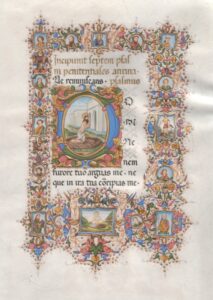 Incipiunt septem psal
mi penitentiales
Ne reminiscaris psalmus
D
ne
Ne
nem
furore tuo arguas me ne
que in ira tua corripias me